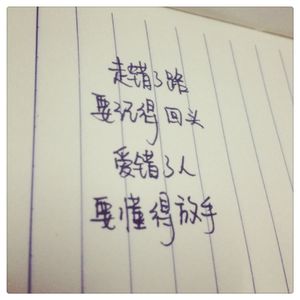 走错了路
要记得回头
爱错了人
要懂得放手